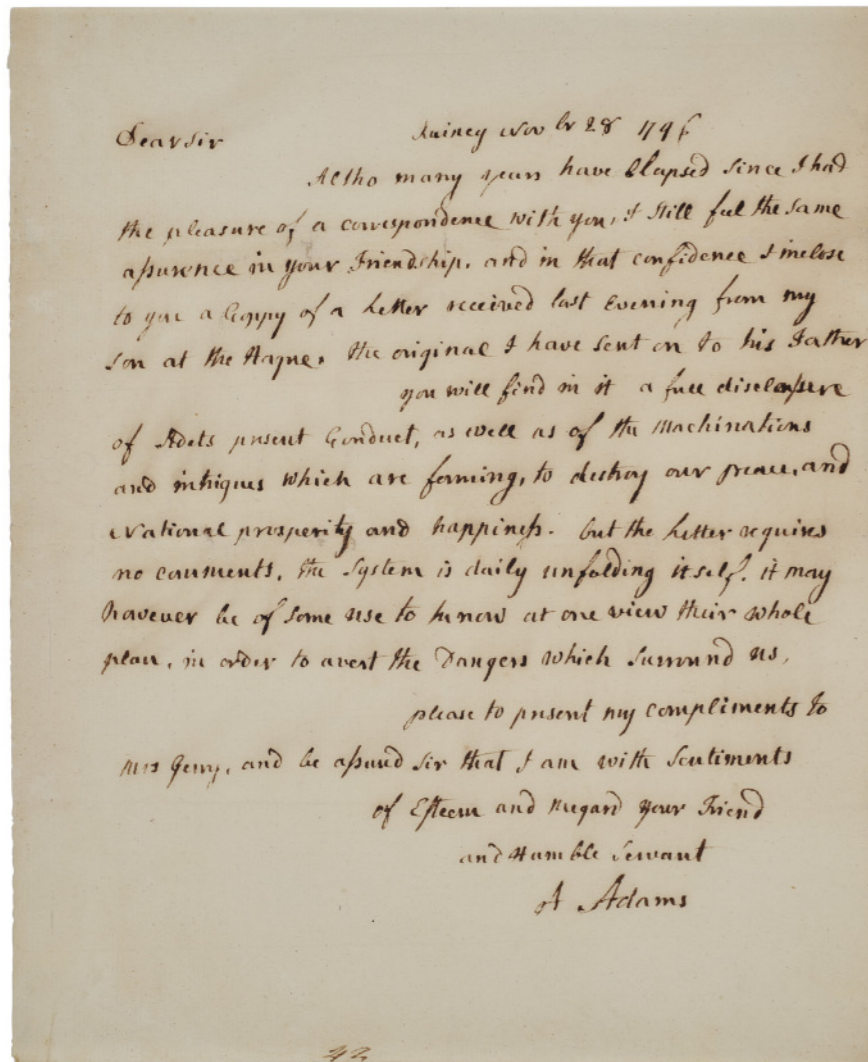 Dear Sir Quincy Novbr 28 1796
Altho many years have Elapsed since I had
the pleasure of a correspondence with you, I still feel the same
assurence in your Friendship. and in that confidence I inclose
to you a Coppy of a Letter received last Evening from my
son at the Hague, the original I have sent on to his Father
you will find in it a full disclosure
of Adets present Conduct, as well as of the Machinations
and intrigues which are forming, to destroy our peace, and
National prosperity and happiness. but the Letter requires
no comments, the System is daily unfolding itself. it may
however be of some use to know at one view their whole
plan, in order to avert the Dangers which surround us,
please to present my compliments to
Mrs Gerry, and be assured Sir that I am with Sentiments
of Esteem and Regard your Friend
and Humble Servant
A Adams